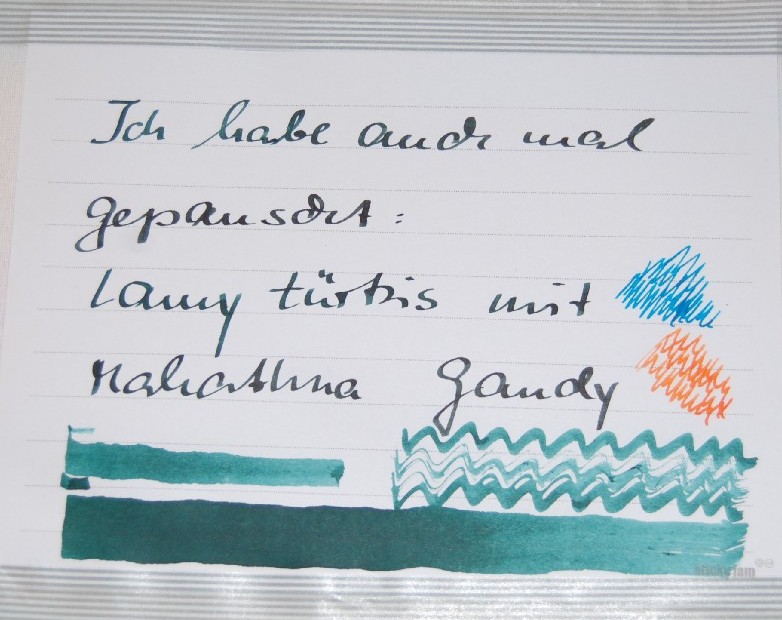 Ich habe auch mal
gepanscht:
Lamy türkis mit
Mahathma Gandy